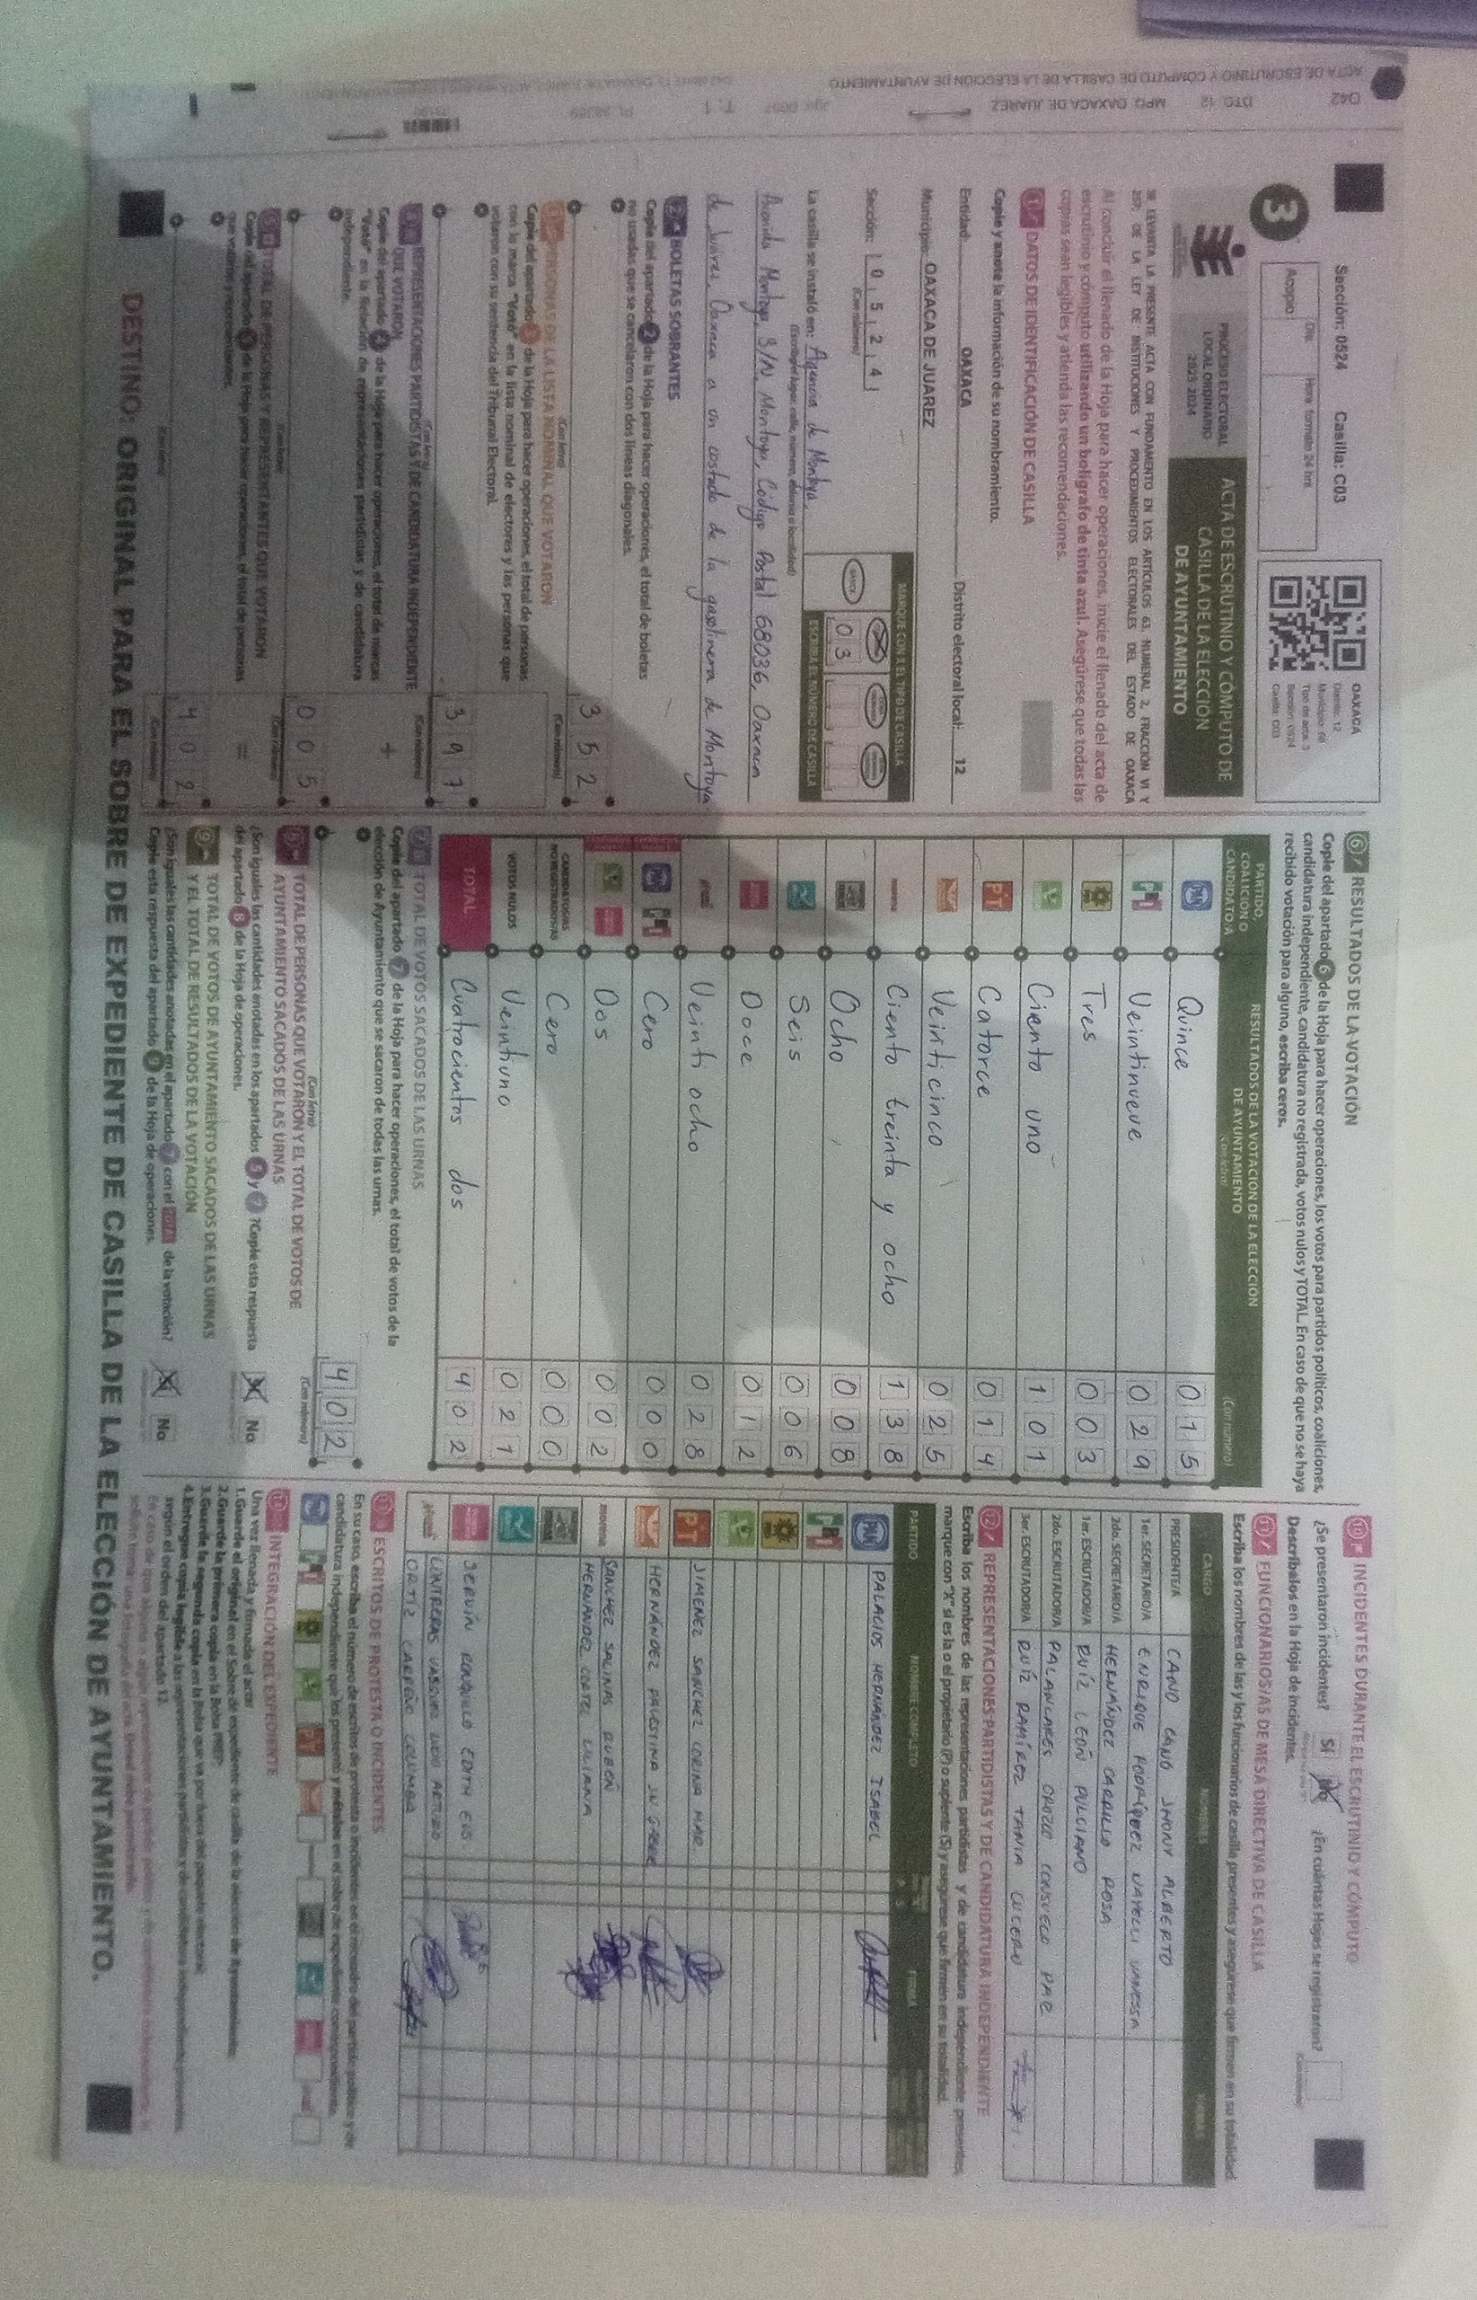 Sección: 0524 Casilla: C03
Acopio
Día
Hora formato 24 hrs
OAXACA
Distrito: 12
Casilla: C03
3
PROCESO ELECTORAL
LOCAL ORDINARIO
2023-2024
ACTA DE ESCRUTINIO Y CÓMPUTO DE
CASILLA DE LA ELECCIÓN
DE AYUNTAMIENTO
SE LEVANTA LA PRESENTE ACTA CON FUNDAMENTO EN LOS ARTÍCULOS 63, NUMERAL 2, FRACCIÓN VI Y
DE LA LEY DE INSTITUCIONES Y PROCEDIMIENTOS ELECTORALES DEL ESTADO DE OAXACA
Al concluir el llenado de la Hoja para hacer operaciones, inicie el llenado del acta de
escrutinio y cómputo utilizando un bolígrafo de tinta azul. Asegúrese que todas las
copias sean legibles y atienda las recomendaciones.
1 DATOS DE IDENTIFICACIÓN DE CASILLA
Copie y anote la información de su nombramiento.
Entidad: OAXACA Distrito electoral local: 12
Municipio: OAXACA DE JUAREZ
Sección: 0 5 2 4
(Con número)
MARQUE CON X EL TIPO DE CASILLA
0 3
ESCRIBA EL NÚMERO DE CASILLA
La casilla se instaló en: Agencia de Montoya,
(Escriba el lugar, calle, número, colonia o localidad)
Avenida Montoya, S/N, Montoya, Código Postal 68036, Oaxaca
de Juárez, Oaxaca a un costado de la gasolinera de Montoya
2 BOLETAS SOBRANTES
Copie del apartado 2 de la Hoja para hacer operaciones, el total de boletas
no usadas que se cancelaron con dos líneas diagonales.
3 5 2
(Con letra) (Con número)
3 PERSONAS DE LA LISTA NOMINAL QUE VOTARON
Copie del apartado 3 de la Hoja para hacer operaciones, el total de personas
con la marca "Votó" en la lista nominal de electores y las personas que
votaron con su sentencia del Tribunal Electoral.
3 9 7
(Con letra) (Con número)
4 REPRESENTACIONES PARTIDISTAS Y DE CANDIDATURA INDEPENDIENTE
QUE VOTARON
Copie del apartado 4 de la Hoja para hacer operaciones, el total de marcas
"Votó" en la Relación de representaciones partidistas y de candidatura
independiente.
+
0 0 5
(Con letra) (Con número)
5 TOTAL DE PERSONAS Y REPRESENTANTES QUE VOTARON
Copie del apartado 5 de la Hoja para hacer operaciones, el total de personas
que votaron y representantes.
=
4 0 2
(Con letra) (Con número)
6 RESULTADOS DE LA VOTACIÓN
Copie del apartado 6 de la Hoja para hacer operaciones, los votos para partidos políticos, coaliciones,
candidatura independiente, candidatura no registrada, votos nulos y TOTAL. En caso de que no se haya
recibido votación para alguno, escriba ceros.
PARTIDO,
COALICIÓN O
CANDIDATO/A
RESULTADOS DE LA VOTACIÓN DE LA ELECCIÓN
DE AYUNTAMIENTO
(Con letra) (Con número)
PAN Quince 0 1 5
PRI Veintinueve 0 2 9
Tres 0 0 3
Ciento uno 1 0 1
PT Catorce 0 1 4
Veinticinco 0 2 5
morena Ciento treinta y ocho 1 3 8
Ocho 0 0 8
Seis 0 0 6
Doce 0 1 2
Veintiocho 0 2 8
PAN PRI Cero 0 0 0
Dos 0 0 2
CANDIDATURAS
NO REGISTRADOS/AS
Cero 0 0 0
VOTOS NULOS Veintiuno 0 2 1
TOTAL Cuatrocientos dos 4 0 2
7 TOTAL DE VOTOS SACADOS DE LAS URNAS
Copie del apartado 7 de la Hoja para hacer operaciones, el total de votos de la
elección de Ayuntamiento que se sacaron de todas las urnas.
4 0 2
(Con letra) (Con número)
8 TOTAL DE PERSONAS QUE VOTARON Y EL TOTAL DE VOTOS DE
AYUNTAMIENTO SACADOS DE LAS URNAS
¿Son iguales las cantidades anotadas en los apartados 5 y 7? Copie esta respuesta
del apartado 8 de la Hoja de operaciones.
Sí No
9 TOTAL DE VOTOS DE AYUNTAMIENTO SACADOS DE LAS URNAS
Y EL TOTAL DE RESULTADOS DE LA VOTACIÓN
¿Son iguales las cantidades anotadas en el apartado 7 con el TOTAL de la votación?
Copie esta respuesta del apartado 9 de la Hoja de operaciones.
Sí No
10 INCIDENTES DURANTE EL ESCRUTINIO Y CÓMPUTO
¿Se presentaron incidentes? Sí No ¿En cuántas Hojas se registraron?
Descríbalos en la Hoja de incidentes.
11 FUNCIONARIOS/AS DE MESA DIRECTIVA DE CASILLA
Escriba los nombres de las y los funcionarios de casilla presentes y asegúrese que firmen en su totalidad.
CARGO NOMBRES FIRMAS
PRESIDENTE/A CANO CANO JHONY ALBERTO
1er. SECRETARIO/A ENRIQUE RODRÍGUEZ NAYELLI VANESSA
2do. SECRETARIO/A HERNÁNDEZ CARRILLO ROSA
1er. ESCRUTADOR/A RUÍZ LEÓN PULCIANO
2do. ESCRUTADOR/A PALANCARES OROZCO CONSUELO MAR
3er. ESCRUTADOR/A RUÍZ RAMÍREZ TANIA LUCERO
12 REPRESENTACIONES PARTIDISTAS Y DE CANDIDATURA INDEPENDIENTE
Escriba los nombres de las representaciones partidistas y de candidatura independiente presentes,
marque con "X" si es la o el propietario (P) o suplente (S) y asegúrese que firmen en su totalidad.
PARTIDO NOMBRE COMPLETO FIRMA
PAN PALACIOS HERNÁNDEZ ISABEL
PRI
PT JIMENEZ SANCHEZ CORINA MAR
HERNÁNDEZ PALESTINA
morena SANCHEZ SALINAS RUBEN
HERNANDEZ CORTEZ LILIANA
SERVÍN RONQUILLO EDITH
CONTRERAS VASQUEZ ARTURO
ORTÍZ CARREÑO COLUMBA
13 ESCRITOS DE PROTESTA O INCIDENTES
En su caso, escriba el número de escritos de protesta o incidentes en el recuadro del partido político y de
candidatura independiente que los presentó y métalos en el sobre de expediente correspondiente.
14 INTEGRACIÓN DEL EXPEDIENTE
Una vez llenada y firmada el acta:
1. Guarde el original en el Sobre de expediente de casilla de la elección de Ayuntamiento;
2. Guarde la primera copia en la Bolsa PREP;
3. Guarde la segunda copia en la Bolsa que va por fuera del paquete electoral;
4. Entregue copia legible a las representaciones partidistas y de candidatura independiente presentes,
según el orden del apartado 12.
DESTINO: ORIGINAL PARA EL SOBRE DE EXPEDIENTE DE CASILLA DE LA ELECCIÓN DE AYUNTAMIENTO.
042 DTO. 12 MPO. OAXACA DE JUAREZ
ACTA DE ESCRUTINIO Y COMPUTO DE CASILLA DE LA ELECCION DE AYUNTAMIENTO